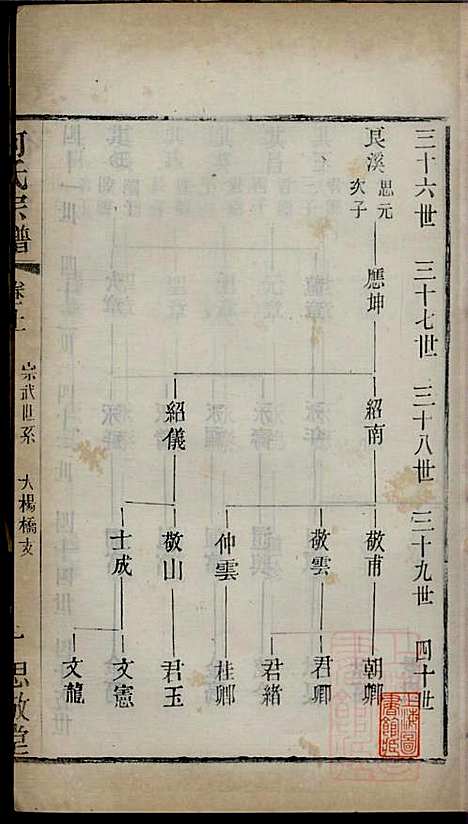 三十六世 三十七世 三十八世 三十九世 四十世
艮溪 思元次子
應坤
紹南
敬甫
朝卿
敬雲
君卿
君緒
仲雲
桂卿
紹儀
敬山
君玉
士成
文憲
文龍
氏宗譜
宗武世系 大楊橋支
思敬堂
上海圖書館藏